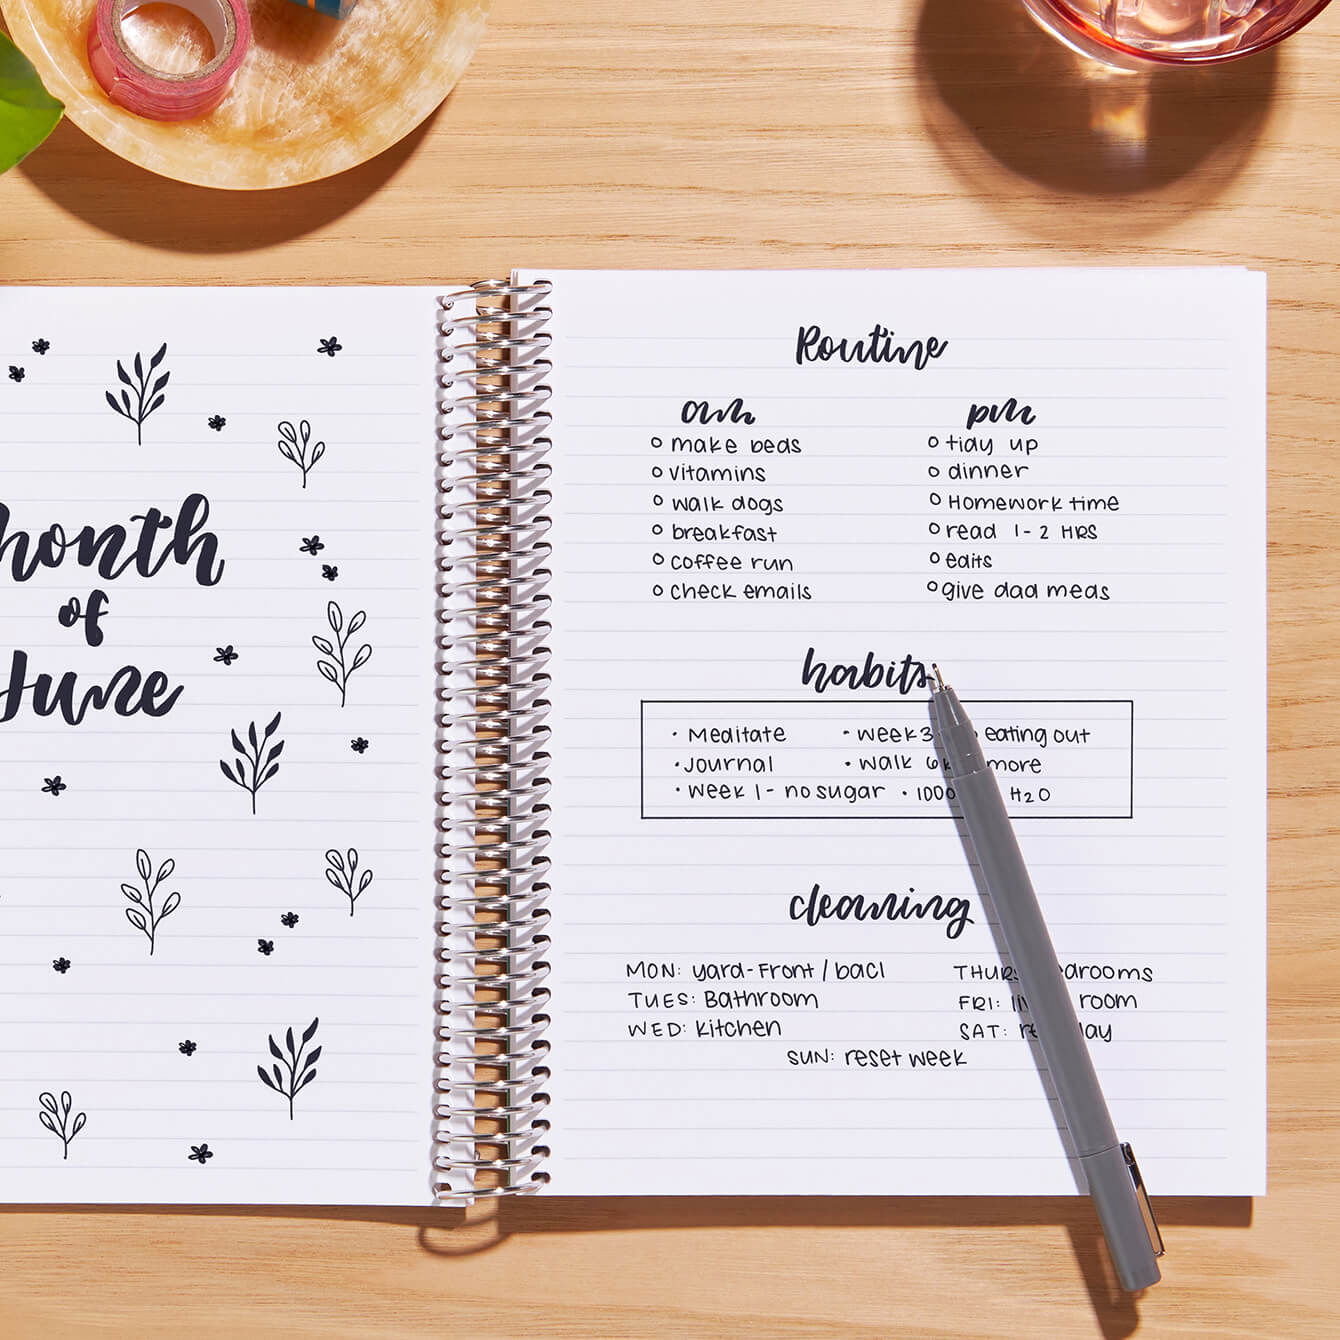 Month
of
June
Routine
am
○ make beds
○ vitamins
○ walk dogs
○ breakfast
○ coffee run
○ check emails
pm
○ tidy up
○ dinner
○ Homework time
○ read 1-2 HRS
○ edits
○ give dad meds
habits
• Meditate
• Journal
• Week 1 - no sugar
• Week 3 eating out
• walk more
• H2O
cleaning
MON: yard-Front / bacl
TUES: Bathroom
WED: kitchen
THURS
FRI: room
SAT:
SUN: reset week